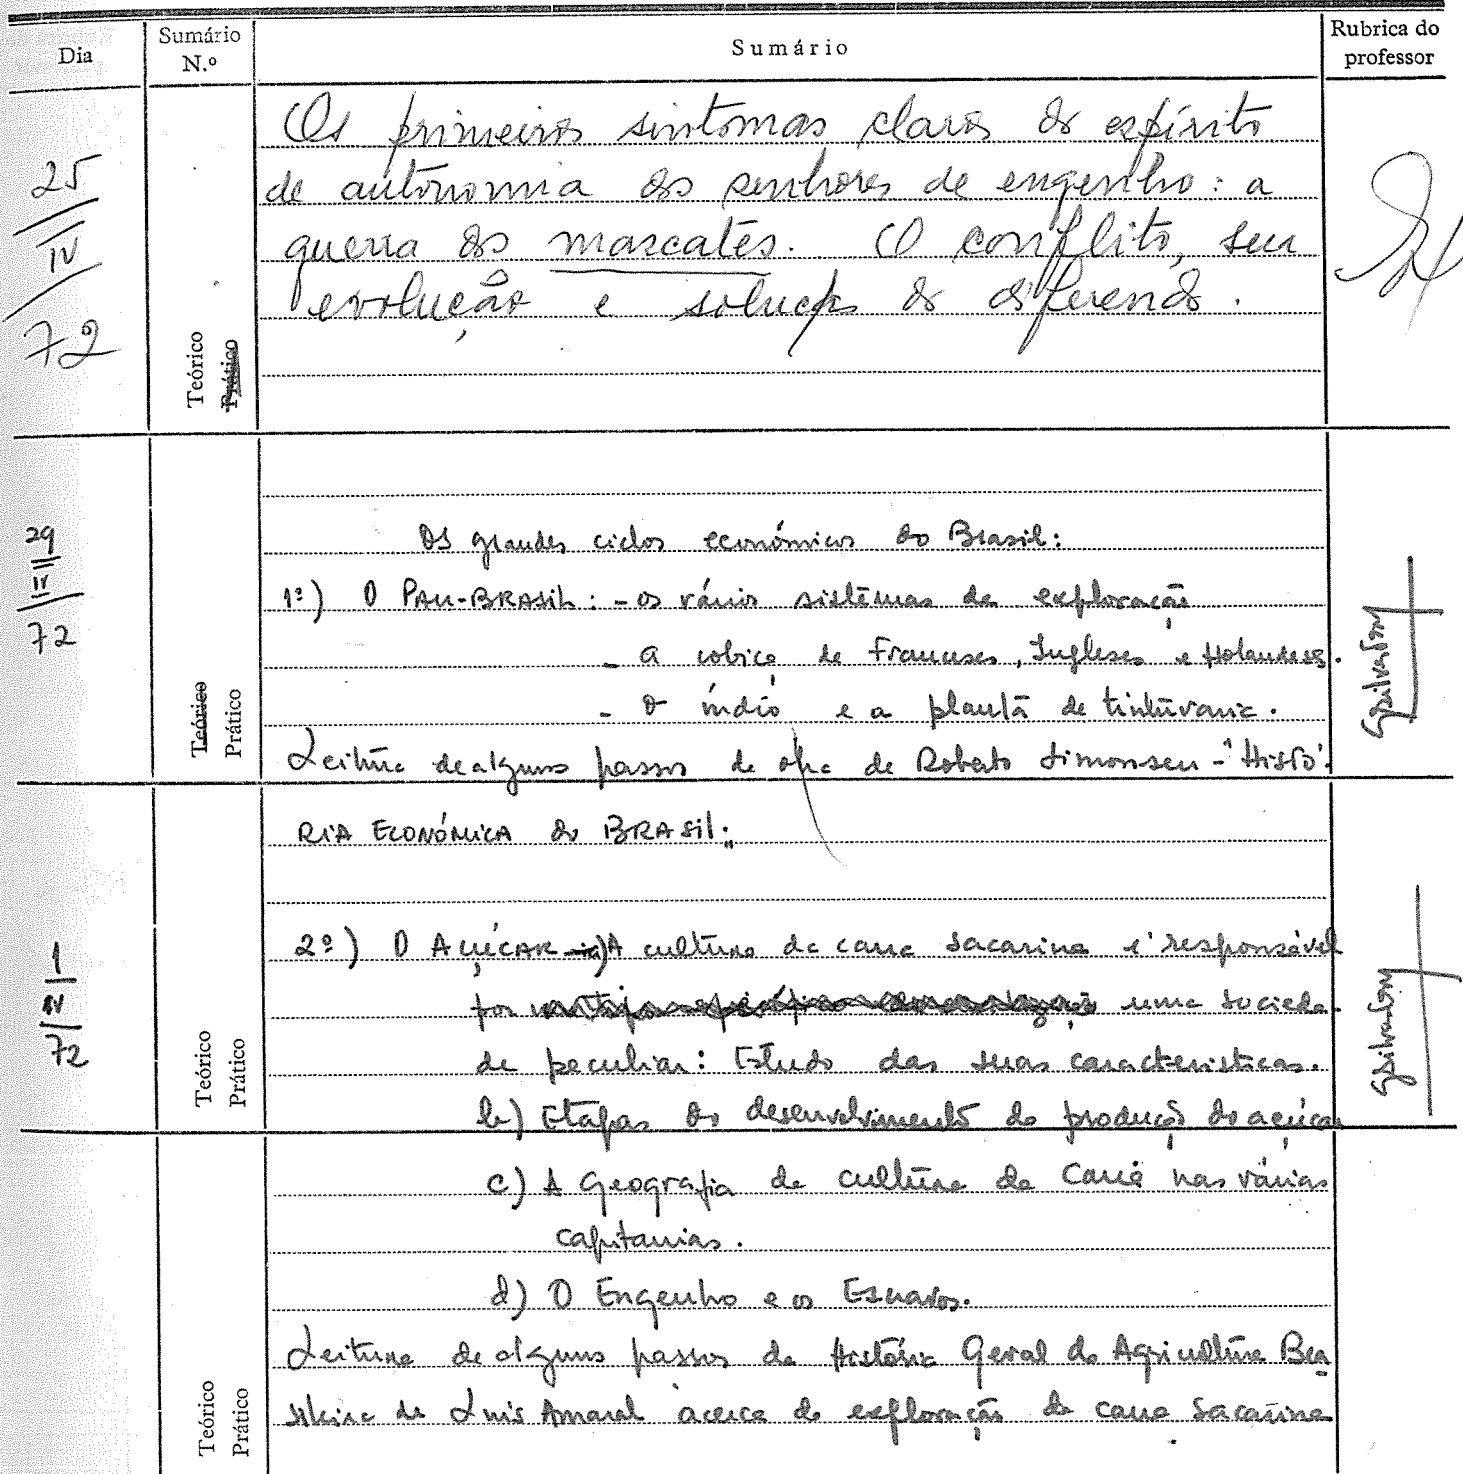 Dia
Sumário N.º
Sumário
Rubrica do professor
25
IV
72
Teórico
Prático
Os primeiros sintomas claros do espírito
de autonomia dos senhores de engenho: a
guerra dos mascates. O conflito, sua
evolução e solução do diferendo.
29
III
72
Teórico
Prático
Os grandes ciclos económicos do Brasil:
1º) O PAU-BRASIL: - os vários sistemas de exploração
- a cobiça de Franceses, Ingleses e Holandeses.
- o índio e a planta de tinturaria.
Leitura de alguns passos da obra de Roberto Simonsen - "Histó-
RIA ECONÓMICA do BRASIL."
1
IV
72
Teórico
Prático
2º) O AÇÚCAR - a) A cultura da cana sacarina é responsável
por uma socieda-
de peculiar: Estudo das suas caracteristicas.
b) Etapas do desenvolvimento da produção do açúcar
c) A Geografia da cultura da Cana nas várias
capitanias.
d) O Engenho e os Escravos.
Leitura de alguns passos da História Geral da Agricultura Bra
sileira de Luis Amaral acerca da exploração da cana sacarina
Teórico
Prático